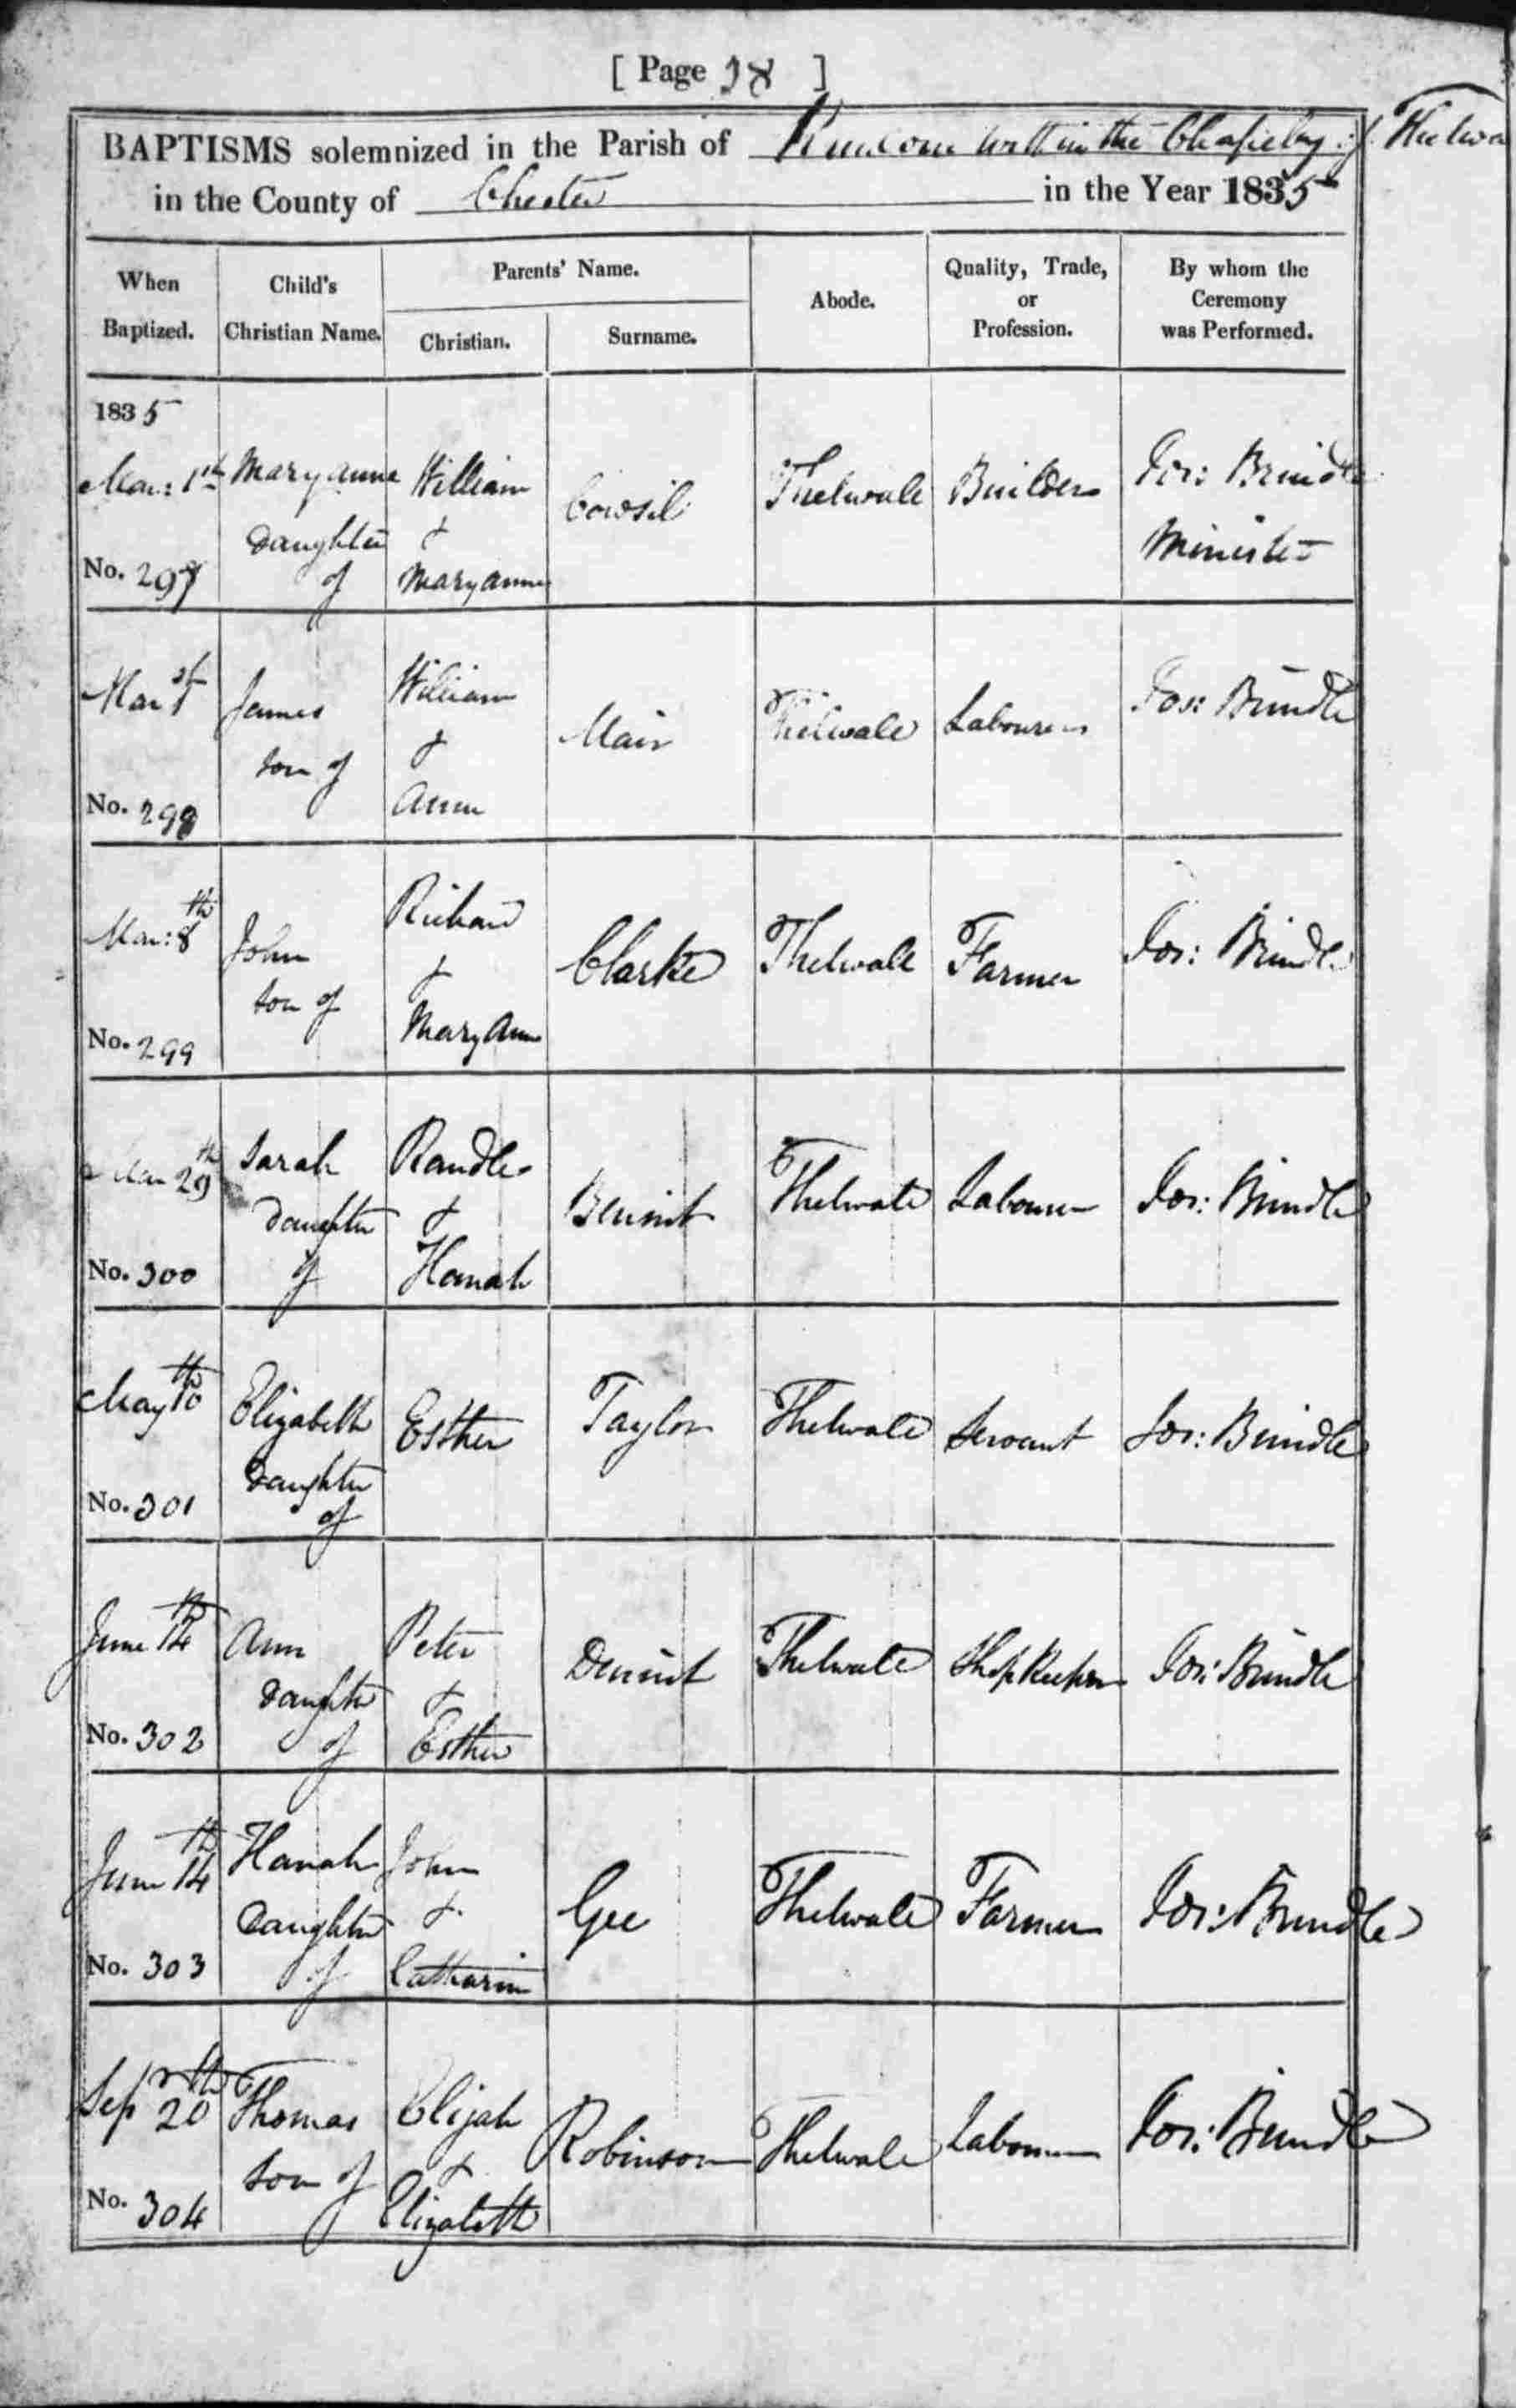 [ Page 38 ]
BAPTISMS solemnized in the Parish of Runcorn within the Chapelry of Thelwa
in the County of Chester in the Year 1835
When Baptized. Child's Christian Name. Parents' Name. Christian. Surname. Abode. Quality, Trade, or Profession. By whom the Ceremony was Performed.
1835
Mar: 1st Mary anne William Cowsil Thelwale Builder Jos: Brindle
Daughter & Minister
No. 297 of Mary anne
Mar 1st James William Mair Thelwale Labourer Jos: Brindle
son of &
No. 298 Ann
Mar: 8th John Richard Clarke Thelwale Farmer Jos: Brindle
son of &
No. 299 Mary Ann
Mar 29th Sarah Randle Thelwale Labourer Jos: Brindle
Daughter &
No. 300 of Hanah
May 10th Elizabeth Esther Taylor Thelwale Servant Jos: Brindle
Daughter
No. 301 of
June 14th Ann Peter Thelwale Shopkeeper Jos: Brindle
Daughter &
No. 302 of Esther
June 14th Hanah John Gee Thelwale Farmer Jos: Brindle
Daughter &
No. 303 of Catharine
Sepr 20th Thomas Elijah Robinson Thelwale Labourer Jos: Brindle
son of &
No. 304 Elizabeth